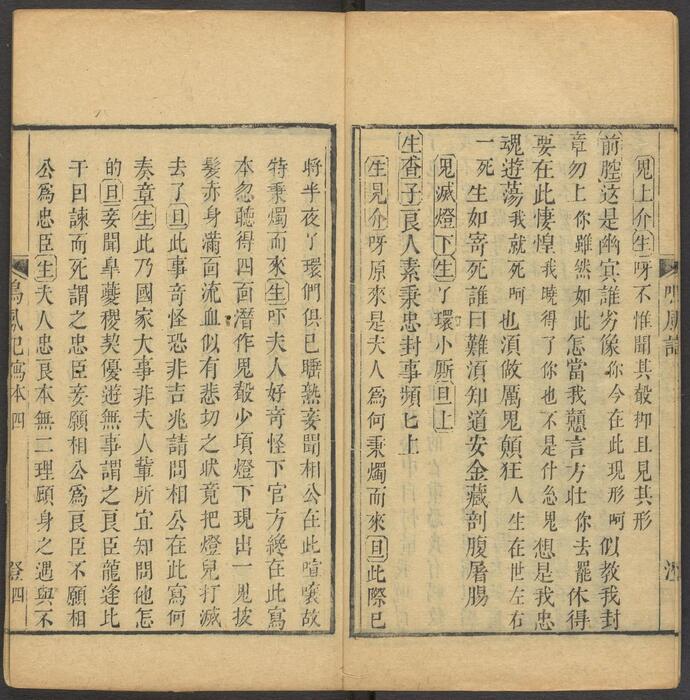 鬼上介生呀不惟聞其聲抑且見其形
前腔這是幽㝠誰劣像你今在此現形呵似教我封
章勿上你雖然如此怎當我戇言方壮你去罷休得
要在此悽惶我曉得了你也不是什急鬼想是我忠
魂遊蕩我就死呵也湏做厲鬼顛狂人生在世左右
一死生如寄死誰曰難湏知道安金藏剖腹屠腸
鬼滅燈下生了環小厮旦上
生查子良人素秉忠封事頻匕上
生見介呀原來是夫人爲何秉燭而來旦此際已
將半夜了環們俱已睡熟妾聞相公在此喧嚷故
特秉燭而來生吓夫人好奇怪下官方纔在此寫
本忽聽得四面潛作鬼聲少頃燈下現出一鬼披
髮赤身滿面流血似有悲切之狀竟把燈兒打滅
去了旦此事奇怪恐非吉兆請問相公在此寫何
奏章生此乃國家大事非夫人輩所宜知問他怎
的旦妾聞臯夔稷契優遊無事謂之良臣龍逄比
干回諫而死謂之忠臣妾願相公爲良臣不願相
公爲忠臣生夫人忠良本無二理顧身之遇與不
鳴鳳記寫本四
登四